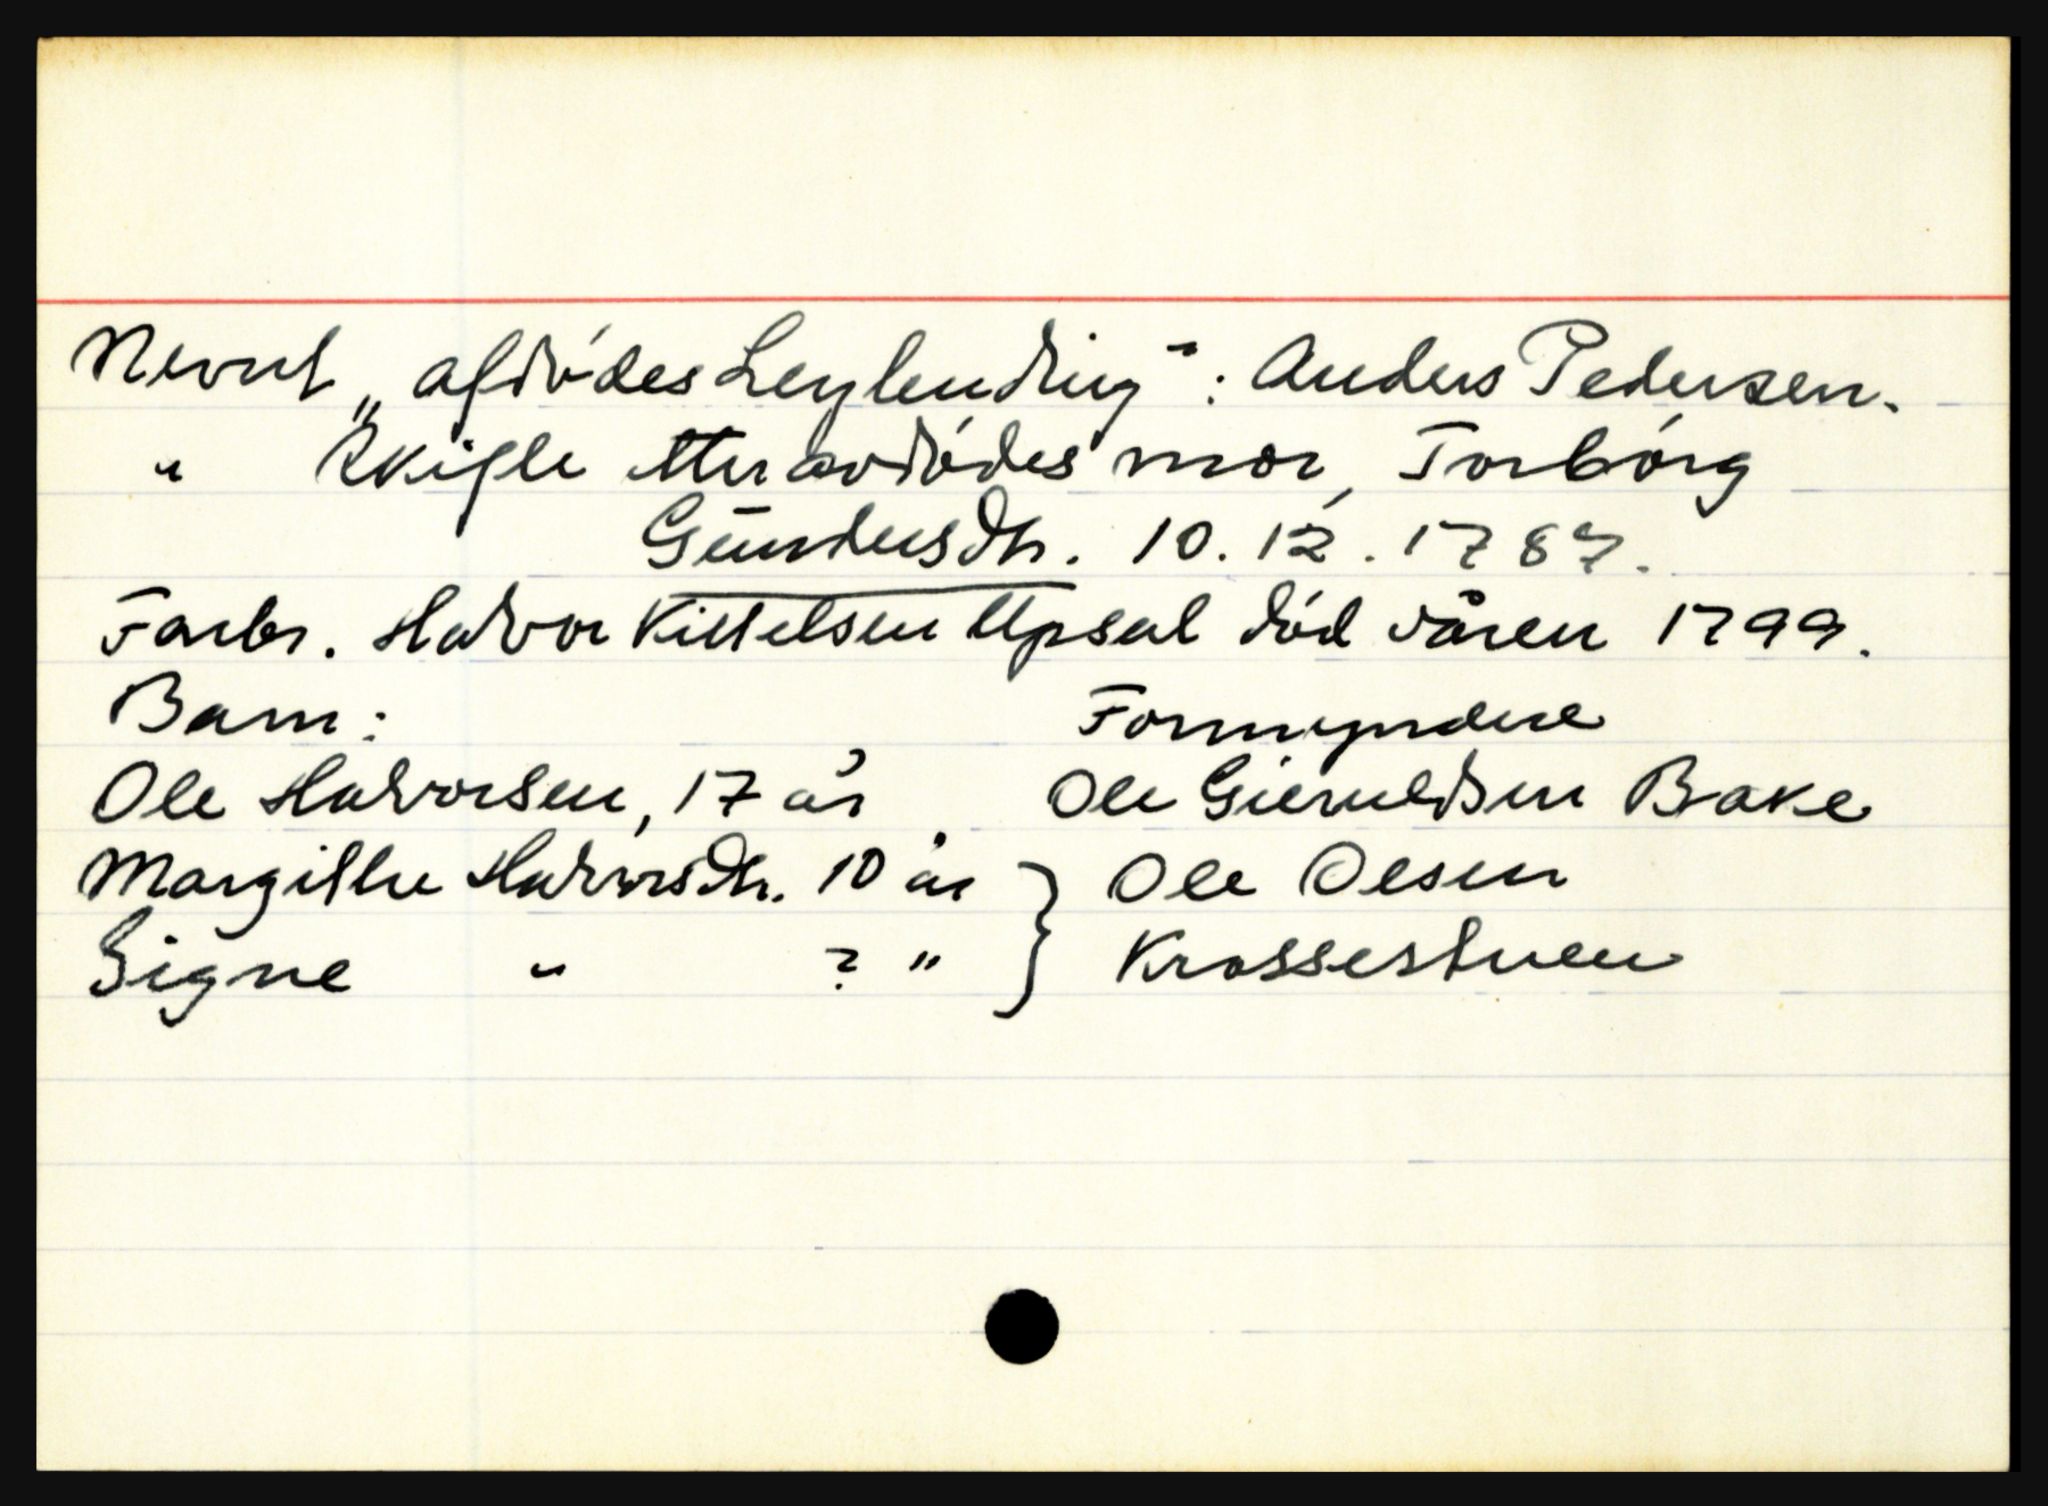 Nevnt „afdódes Leylending": Anders Pedersen.
" Skifte etter avdódes mor, Torbórg
Gundersdtr. 10.12.1787.
Farbr. Halvor Kittelsen Upsal död våren 1799.
Barn: Formyndere
Ole Halvorsen, 17 år Ole Gieruldsen Bake
Margitte Halvorsdtr. 10 år } Ole Olsen
Signe " ? " } Krossestuen